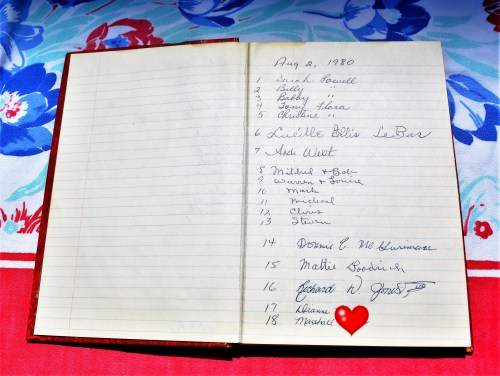 Aug 2, 1980
1 Sarah Powell
2 Billy "
3 Bobby "
4 Tony Flora
5 Christine "
6 Lucille Ellis LeBar
7 West
8 Mildred & Bob
9 Warren & Louise
10 Mark
11 Michael
12 Chris
13 Steven
14 Donnie E.
15 Mattie Goodrich
16 Richard W. Jones, III
17 Dianne
18 Marshall